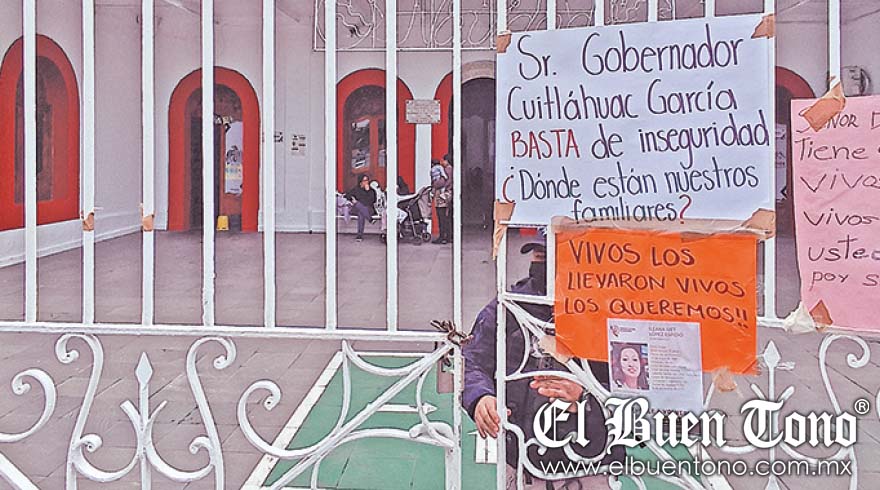 Sr. Gobernador
Cuitláhuac García
BASTA de inseguridad
¿Dónde están nuestros
familiares?
VIVOS LOS
LLEVARON VIVOS
LOS QUEREMOS!!
SEÑOR
Tiene
VIVOS
VIVOS
usted
por s
El Buen Tono®
www.elbuentono.com.mx